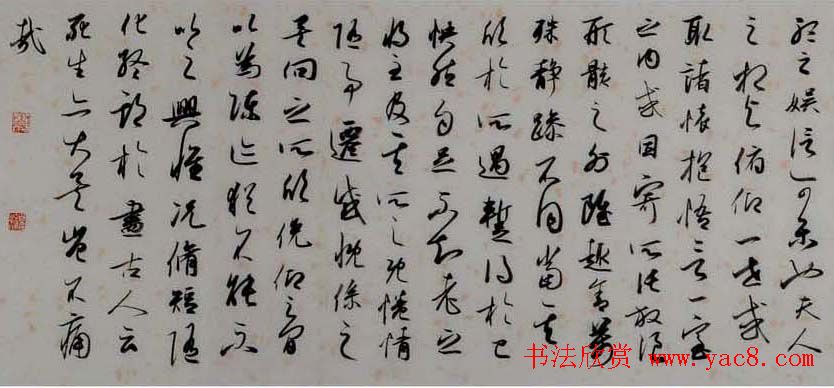 聽之娱信可樂也夫人
之相與俯仰一世或
取諸懷抱悟言一室
之内或因寄所託放浪
形骸之外雖趣舍萬
殊静躁不同當其
欣於所遇暫得於己
快然自足不知老之
將至及其所之既惓情
随事遷感慨係之
矣向之所欣俛仰之間
以為陳迹猶不能不
以之興懷况脩短随
化終期於盡古人云
死生亦大矣豈不痛
哉
书法欣赏 www.yac8.com